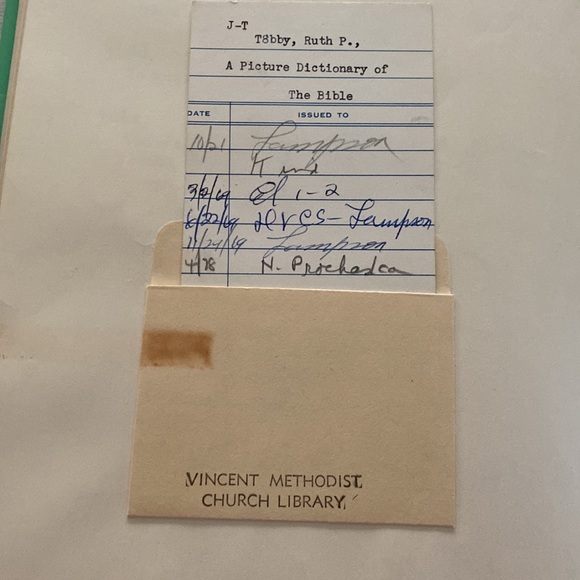 J-T
T8bby, Ruth P.,
A Picture Dictionary of
The Bible
DATE ISSUED TO
10/21 Lampson
Kind
3/2/69 El 1-2
6/22/69 - Lampson
11/24/19 Lampson
4/78 N. Prochaska
VINCENT METHODIST
CHURCH LIBRARY